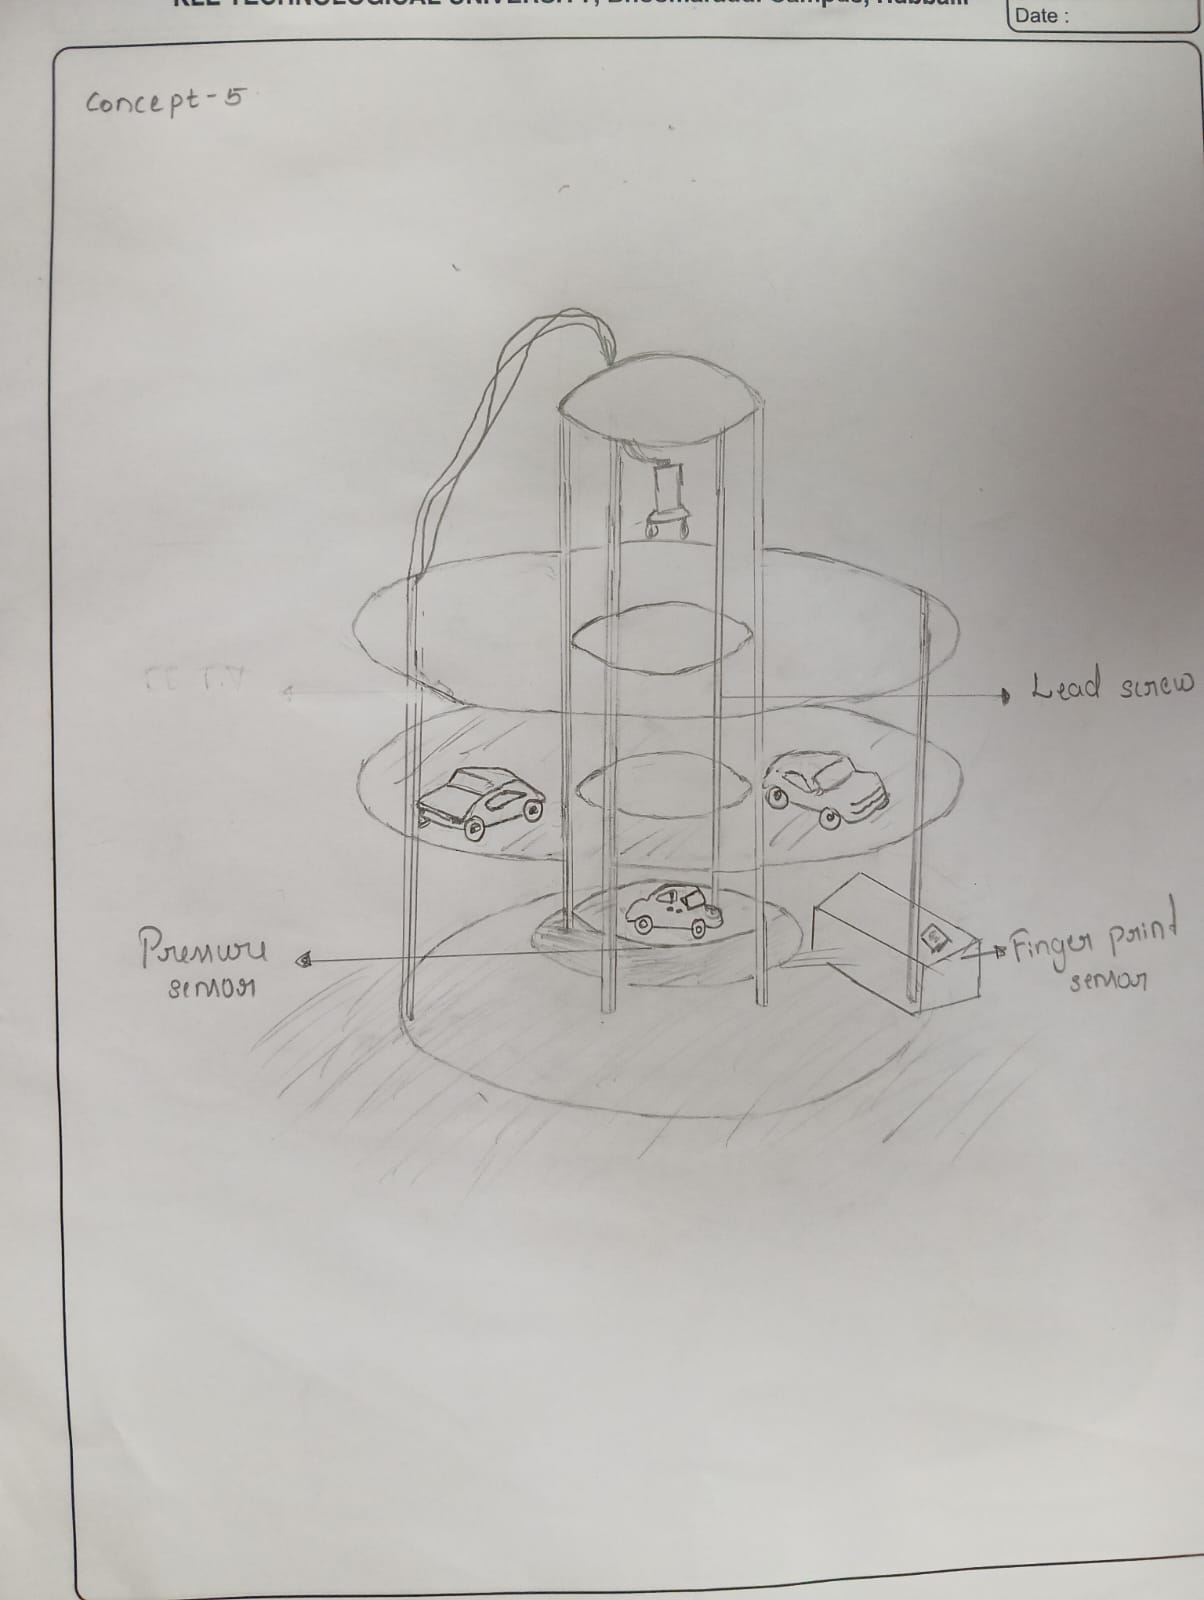 KLE TECHNOLOGICAL UNIVERSITY, Bhoomaraddi Campus, Hubballi
Date :
Concept-5
Lead screw
Pressure
sensor
Finger print
sensor